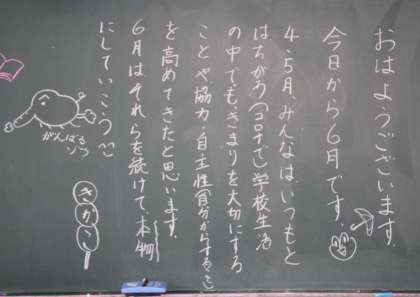 おはようございます。
今日から6月です。
4、5月、みんなは、いつもと
はちがう（コロナで）学校生活
の中でも、きまりを大切にする
ことや協力・自主性（自分からすること）
を高めてきたと思います。
6月はそれらを続けて、本物
にしていこう
がんばる
ゾウ
きかこ